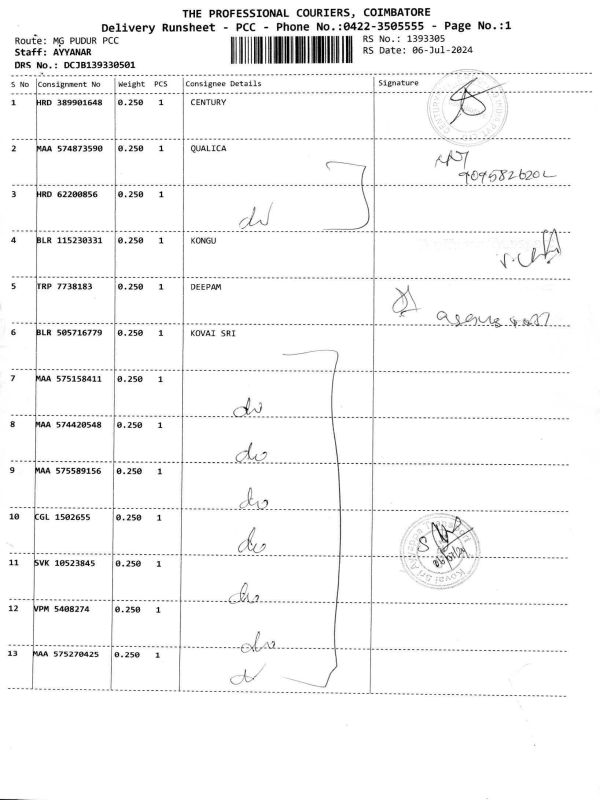 THE PROFESSIONAL COURIERS, COIMBATORE
Delivery Runsheet - PCC - Phone No.:0422-3505555 - Page No.:1
Route: MG PUDUR PCC
RS No.: 1393305
Staff: AYYANAR
RS Date: 06-Jul-2024
DRS No.: DCJB139330501
S No Consignment No Weight PCS Consignee Details Signature
1 HRD 389901648 0.250 1 CENTURY
2 MAA 574873590 0.250 1 QUALICA
3 HRD 62200856 0.250 1
do
4 BLR 115230331 0.250 1 KONGU
5 TRP 7738183 0.250 1 DEEPAM
6 BLR 505716779 0.250 1 KOVAI SRI
7 MAA 575158411 0.250 1
do
8 MAA 574420548 0.250 1
do
9 MAA 575589156 0.250 1
do
10 CGL 1502655 0.250 1
do
11 SVK 10523845 0.250 1
do
12 VPM 5408274 0.250 1
do
13 MAA 575270425 0.250 1